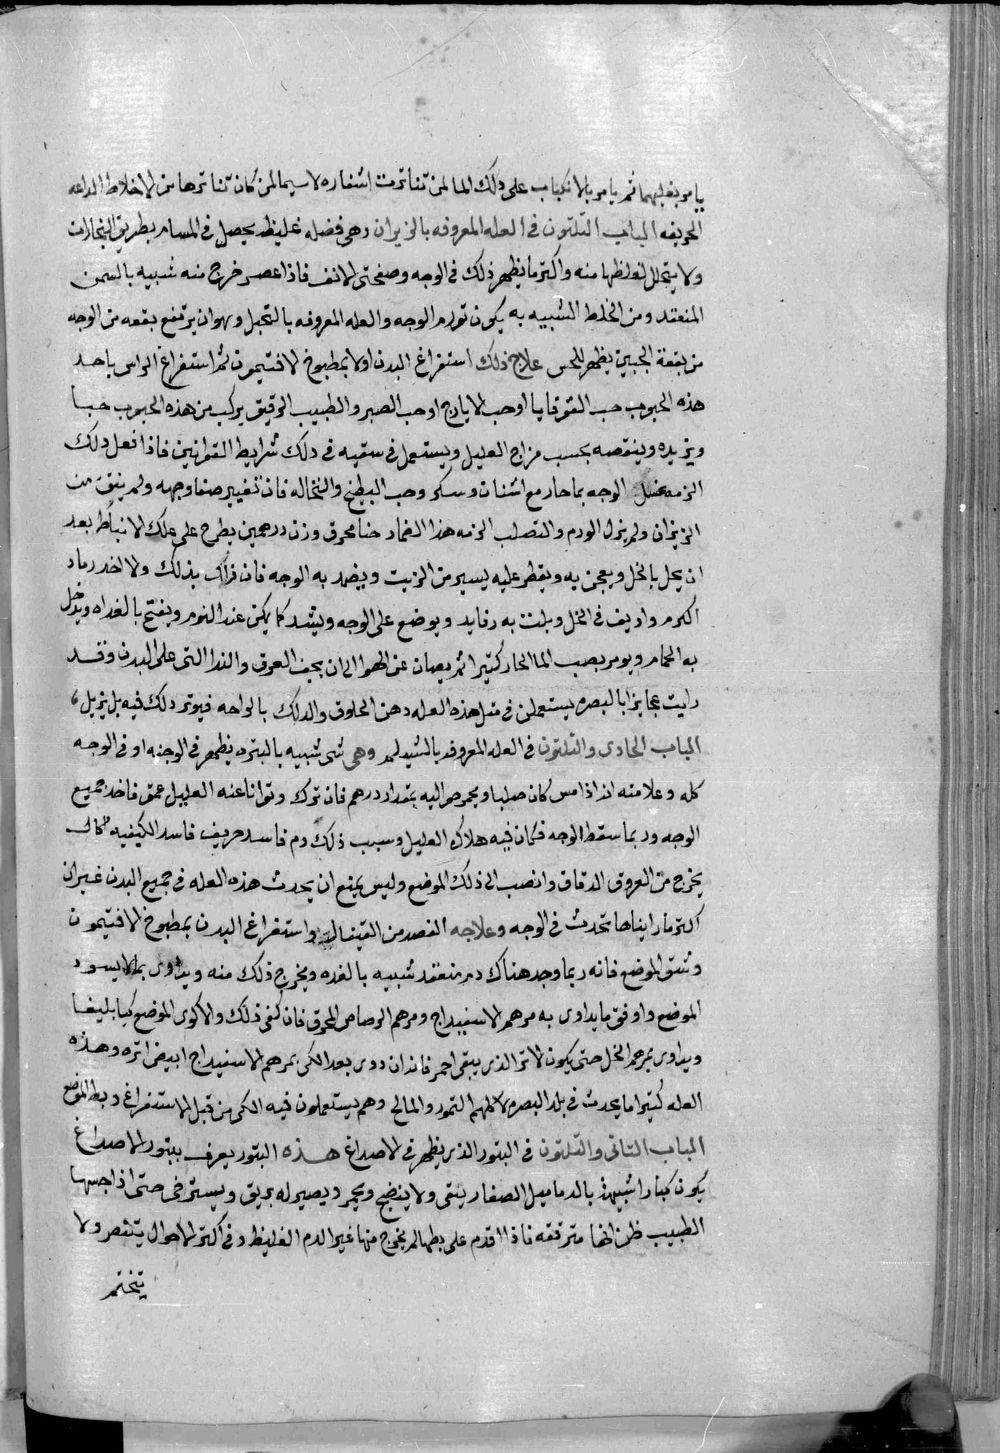 يامر بغليهما ثم يامر بالانكباب على ذلك الما لمن تناثرت اشفاره لا سيما لمن كان تناثرها من الاخلاط
الحريفه الباب الثلثون في العله المعروفه بالزيوان وهي فضله غليظه يحصل في المسام بطريق البخارات
ولا يتحلل لغلظها منه واكثر ما يظهر ذلك في الوجه وصفحتى الانف فاذا عصر خرج منه شبيه بالسمن
المنعقد ومن الخلط الشبيه به يكون تورم الوجه والعله المعروفه بالتحبل وهو ان يرتفع بقعه من الوجه
من بقعة الجبين يظهر للحس علاج ذلك استفراغ البدن اولا بمطبوخ الافتيمون ثم استفراغ الراس باحد
هذه الحبوب حب القوقايا او حب الايارج او حب الصبر والطبيب الرفيق يركب من هذه الحبوب حبا
ويزيده وينقصه بحسب مزاج العليل ويستعمل في سقيه في ذلك شرايط القوانين فاذا فعل ذلك
الزمه غسل الوجه بماحار مع اشنان وسكر وحب البطيخ والنخاله فان تغيير صفا وجهه ولم ينق من
الزيوان ولم يزل الورم والتصلب الزمه هذا الضماد حنا محرق وزن درهمين يطرح على علك الانباط بعد
ان يحل بالخل ويعجن به ويقطر عليه يسير من الزيت ويضمد به الوجه فان زال بذلك والا اخذ رماد
الكرم واديف في الخل وبلت به رفايد ويوضع على الوجه ويشد كما يمكن عند النوم ويفتح بالغداه ويدخل
به الحمام ويومر بصب الما الحار كثيرا ثم يصان عن الهوا الى ان يجف العرق والندا التى على البدن وقد
رايت عجايزا بالبصره يستعملن في مثل هذه العله دهن الخلوق والدلك بالراحه فيوثر ذلك فيه بل يزيل
الباب الحادى والثلثون في العله المعروفه بالشيدلم وهى شى شبيه بالبثره يظهر في الوجنه او في الوجه
كله وعلامته انه اذا مس كان صلبا ويحمر حواليه بمقدار درهم فان ترك وتوانا عنه العليل عمق فاخذ جميع
الوجه وربما سقط الوجه فكان فيه هلاك العليل وسبب ذلك دم فاسد حريف فاسد الكيفيه
يخرج من العروق الدقاق وانصب الى ذلك الموضع وليس يمنع ان يحدث هذه العله في جميع البدن غير ان
اكثر ما رايناها تحدث في الوجه وعلاجه الفصد من القيفال واستفراغ البدن بمطبوخ الافتيمون
وشق الموضع فانه ربما وجد هناك دم منعقد شبيه بالغده ويخرج ذلك منه ويداوى بما لا يسود
الموضع واوفق مايداوى به مرهم الاسفيداج ومرهم الرصاص المحرق فان كفى ذلك والا كوى الموضع كيا بليغا
ويداوى بمرهم الخل حتى يكون الاثر الذى يبقى احمر فانه ان دووى بعد الكى بمرهم الاسفيداج ابيض اثره وهذه
العله كثيرا ما يحدث في بلد البصره لاكلهم التمور والمالح وهم يستعملون فيه الكى من قبل الاستفراغ وبط الموضع
الباب الثانى والثلثون في البثور الذى يظهر في الاصداغ هذه البثور يعرف ببثور الاصداغ
يكون كبارا شبيهة بالدماميل الصغار يبقى ولا ينضج ويحمر ويصير له بريق ويسترخى حتى اذا جسها
الطبيب ظن انها مترققه فاذا اقدم على بطها لم يخرج منها غير الدم الغليظ وفى اكثر الاحوال يتنصر ولا
يتختم